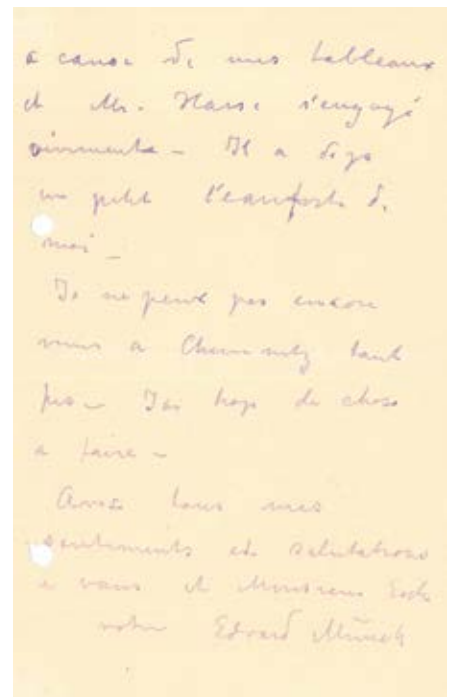 a cause de mes tableaux
et Mr. s'engagé
Il a deja
un petit l'eauforte de
moi –
Je ne peux pas encore
venir a Chemnitz tant
pis – J'ai trop de chose
a faire –
Avec tous mes
sentiments et salutations
a vous et Monsieur
votre Edvard Munch